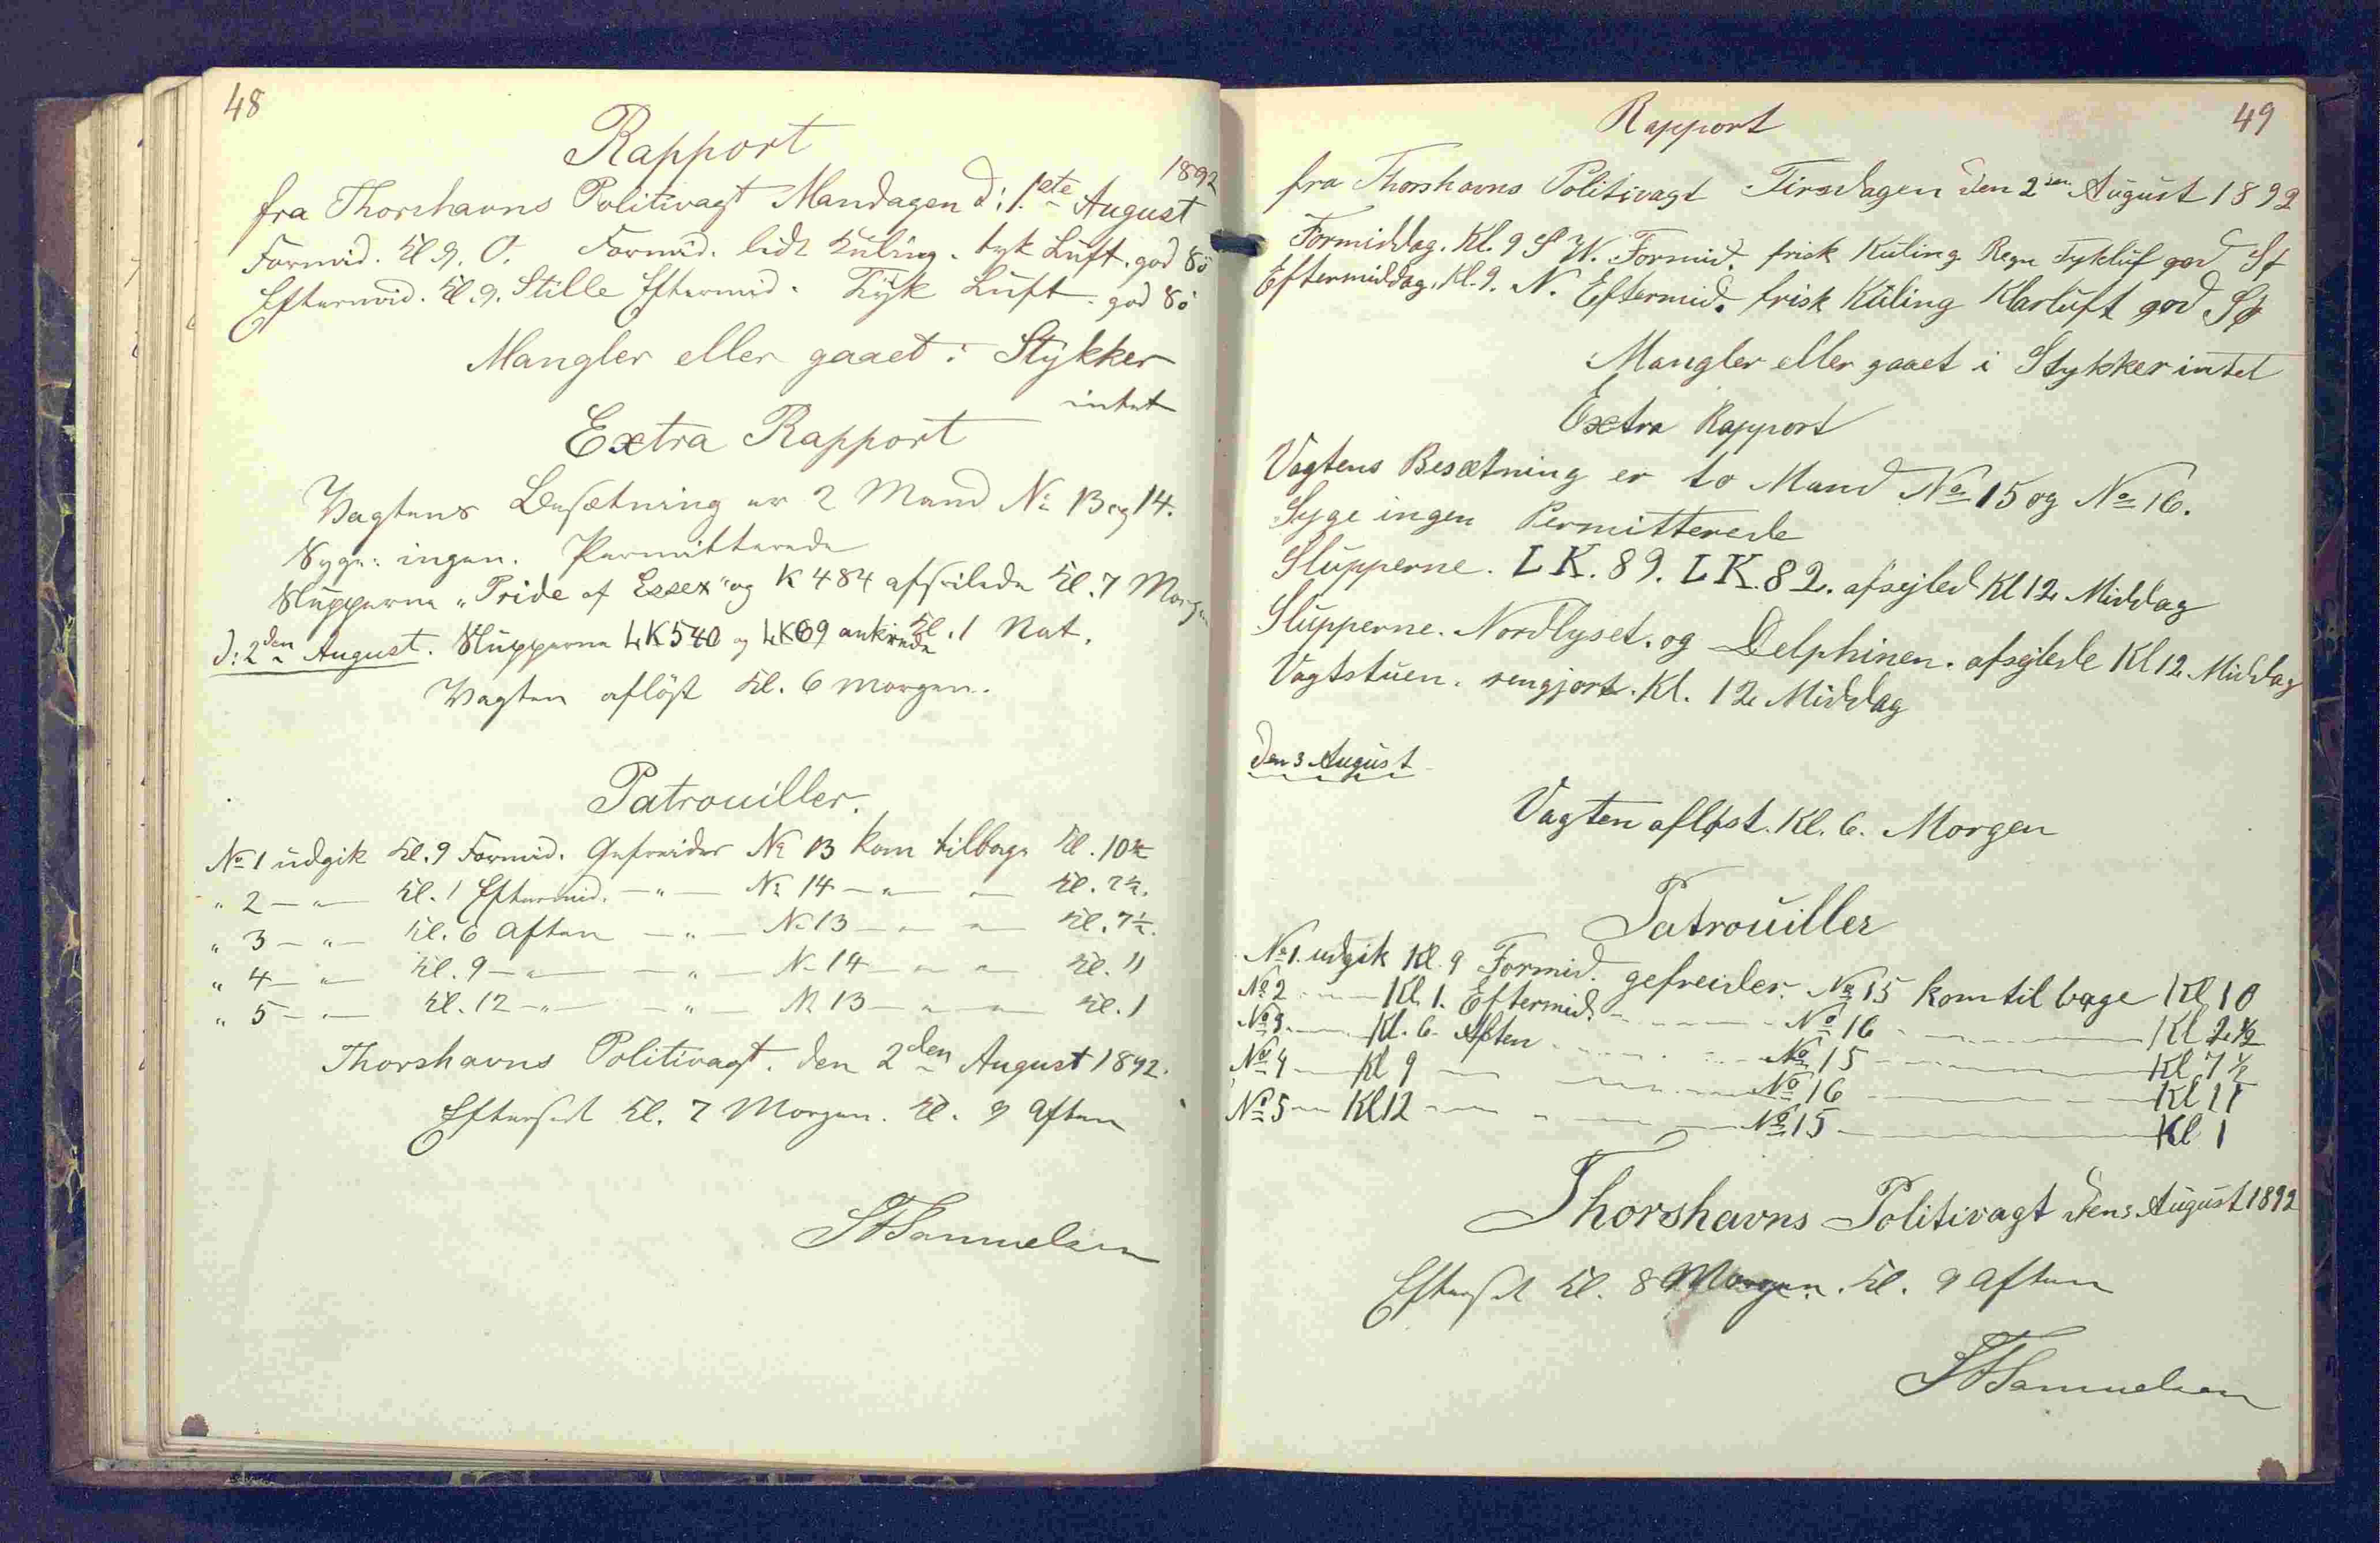 48
Rapport
1892
fra Thorshavns Politivagt Mandagen d: 1ste August
Formid. Kl. 9. O. Formid. lidt Kuling. tyk Luft. god Sö
Eftermid. Kl. 9. Stille Eftermid. Tyk Luft. god Sö
Mangler eller gaaet i Stykker
intet
Extra Rapport
Vagtens Besætning er 2 Mand No 13 og 14.
Syge: ingen. Permitterede
Slupperne "Pride of Essex" og K 484 afseilede Kl. 7 Morgen
d: 2den August. Slupperne LK 540 og LK 69 ankrede Kl. 1 Nat.
Vagten aflöst Kl. 6 morgen.
Patrouiller.
No 1 udgik Kl. 9 Formid. Gefreider No 13 kom tilbage Kl. 10½
" 2 — " — Kl. 1 Eftermid. — " — No 14 — " — " — Kl. 2½.
" 3 — " — Kl. 6 Aften — " — No 13 — " — " — Kl. 7½.
" 4 — " — Kl. 9 — " — — " — No 14 — " — " — Kl. 11
" 5 — " — Kl. 12 — " — — " — No 13 — " — " — Kl. 1
Thorshavns Politivagt. den 2den August 1892.
Efterset Kl. 7 Morgen. Kl. 9 Aften
Samuelsen
49
Rapport
fra Thorshavns Politivagt Tirsdagen den 2den August 1892
Formiddag. Kl. 9 S W. Formid. frisk Kuling Regn Tykluf god Sø
Eftermiddag. Kl. 9. N. Eftermid. frisk Kuling Klarluft god Sø
Mangler eller gaaet i Stykker intet
Extra Rapport
Vagtens Besætning er to Mand No 15 og No 16.
Syge ingen Permitterede
Slupperne. LK. 89. LK. 82. afsejled Kl 12 Middag
Slupperne. Nordlyset. og Delphinen. afsejlede Kl 12. Middag
Vagtstuen. rengjort. Kl. 12 Middag
den 3 August
Vagten afløst. Kl. 6. Morgen
Patrouiller
No 1. udgik Kl. 9 Formid. gefreider. No 15 kom til bage Kl 10
No 2 — Kl. 1. Eftermid. — No 16 — Kl 2½
No 3 — Kl. 6. Aften — No 15 — Kl 7½
No 4 — Kl 9 — No 16 — Kl 11
No 5 — Kl 12 — No 15 — Kl 1
Thorshavns Politivagt den 3 August 1892
Efterset Kl. 8 Morgen. Kl. 9 Aften
Samuelsen